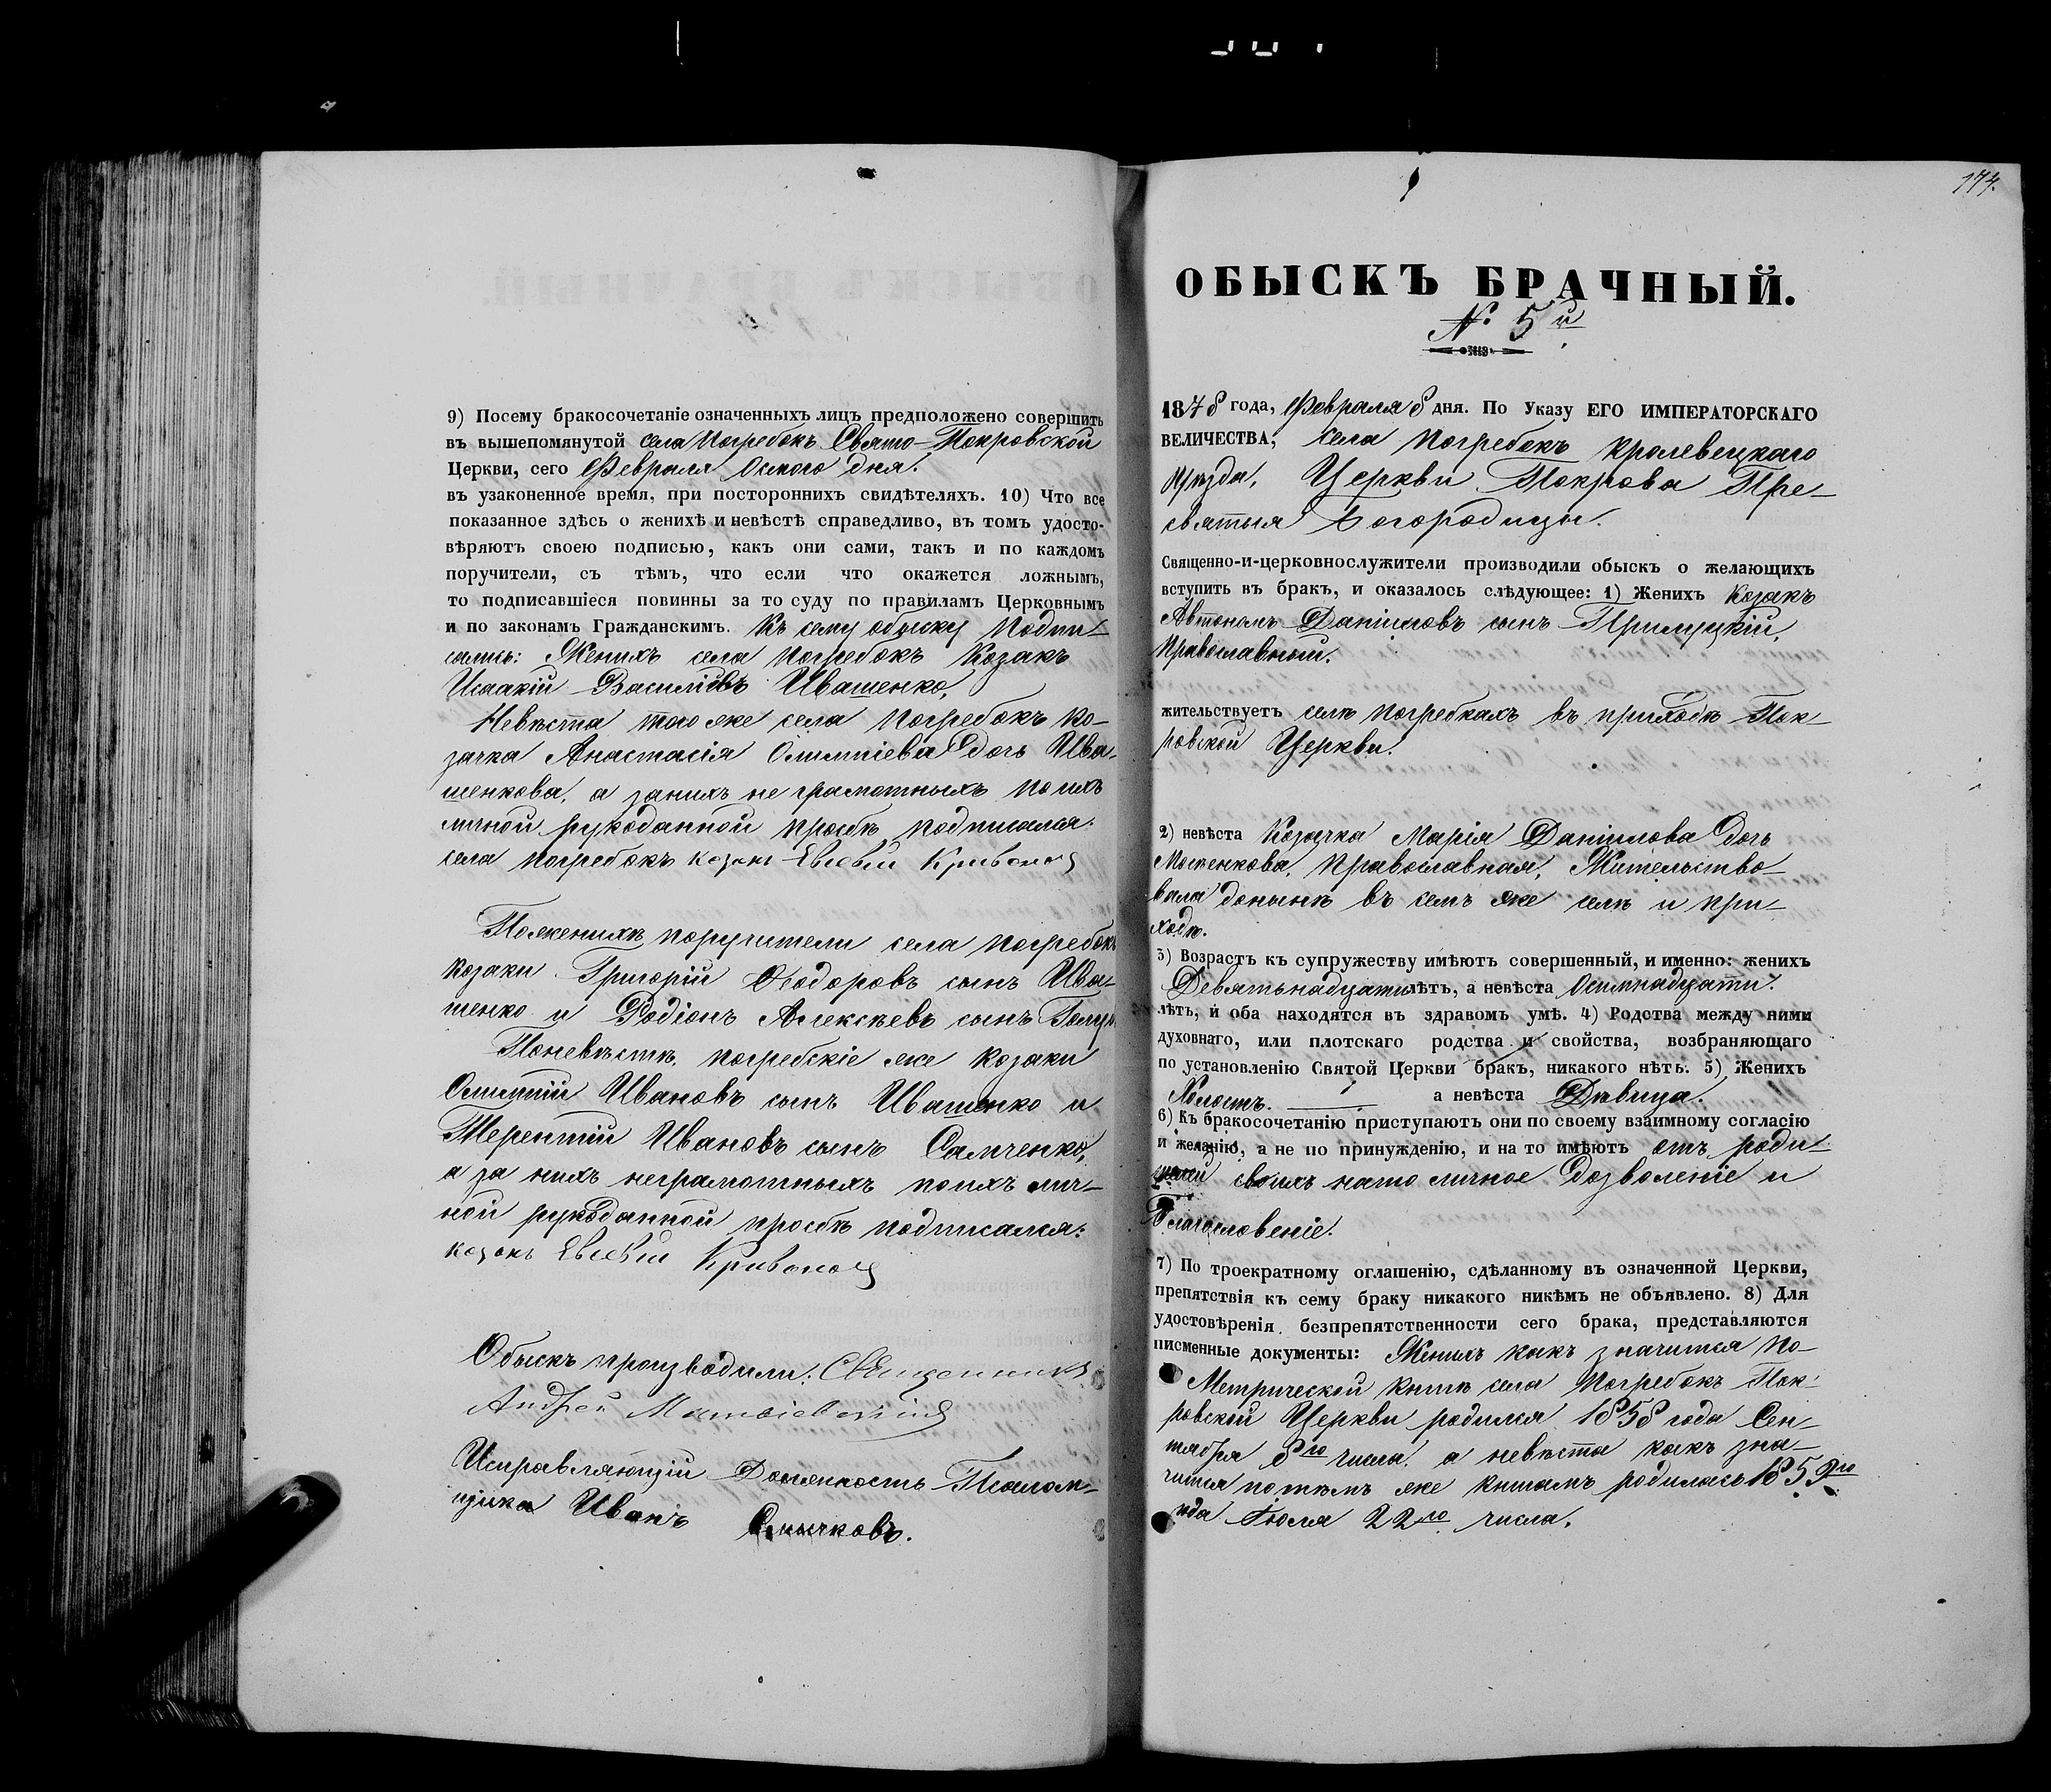 9) Посему бракосочетаніе означенныхъ лицъ предположено совершить
въ вышепомянутой села Погребокъ Свято-Покровской
Церкви, сего Февраля Осмого дня.
въ узаконенное время, при постороннихъ свидѣтеляхъ. 10) Что все
показанное здѣсь о женихѣ и невѣстѣ справедливо, въ томъ удосто-
вѣряютъ своею подписью, какъ они сами, такъ и по каждомъ
поручители, съ тѣмъ, что если что окажется ложнымъ,
то подписавшіеся повинны за то суду по правиламъ Церковнымъ
и по законамъ Гражданскимъ. Къ сему обыску подпи-
сались: Женихъ села Погребокъ Козакъ
Исаакій Василіевъ Ивашенко,
Невѣста того же села Погребокъ ко-
зачка Анастасія Олимпіева дочь Ива-
шенкова, а занихъ не грамотныхъ по ихъ
личной рукоданной просьбѣ подписался:
села Погребокъ козакъ Евсевій Кривонос
По женихѣ поручители села Погребокъ
Козаки Григорій Ѳеодоровъ сынъ Ива-
шенко и Родіонъ Алексѣевъ сынъ
По невѣстѣ, погребскіе же козаки
Олимпій Ивановъ сынъ Ивашенко и
Терентій Ивановъ сынъ Самченко,
а за нихъ неграмотныхъ по ихъ лич-
ной рукоданной просьбѣ подписался:
козакъ Евсевій Кривонос
Обыскъ производили: Священникъ
Андрей
Исправляющій Должность Псалом-
щика Иванъ

174.
ОБЫСКЪ БРАЧНЫЙ.
№ 5й
1878 года, Февраля 8 дня. По Указу ЕГО ИМПЕРАТОРСКАГО
ВЕЛИЧЕСТВА, села Погребокъ Кролевецкаго
уѣзда, Церкви Покрова Пре-
святыя Богородицы.
Священно-и-церковнослужители производили обыскъ о желающихъ
вступить въ бракъ, и оказалось слѣдующее: 1) Женихъ Козакъ
Автономъ Даніиловъ сынъ Прилуцкій,
Православный.
жительствуетъ селѣ Погребкахъ въ приходѣ Пок-
ровской Церкви.
2) невѣста Козачка Марія Даніилова дочь
православная, Жительство-
вала донынѣ въ семъ же селѣ и при-
ходѣ.
3) Возрастъ къ супружеству имѣютъ совершенный, и именно: женихъ
Девятьнадцати лѣтъ, а невѣста Осимнадцати.
лѣтъ, и оба находятся въ здравомъ умѣ. 4) Родства между ними
духовнаго, или плотскаго родства и свойства, возбраняющаго
по установленію Святой Церкви бракъ, никакого нѣтъ. 5) Женихъ
Холостъ. а невѣста Дѣвица.
6) Къ бракосочетанію приступаютъ они по своему взаимному согласію
и желанію, а не по принужденію, и на то имѣютъ отъ роди-
телей своихъ на то личное дозволеніе и
Благословеніе.
7) По троекратному оглашенію, сдѣланному въ означенной Церкви,
препятствія къ сему браку никакого никѣмъ не объявлено. 8) Для
удостовѣренія безпрепятственности сего брака, представляются
писменные документы: Женихъ какъ значится по
Метрической книгѣ села Погребокъ Пок-
ровской Церкви родился 1858 года Сен-
тября 8го числа, а невѣста какъ зна-
чится по тѣмъ же книгамъ родилась 1859го
года Іюля 22го числа.